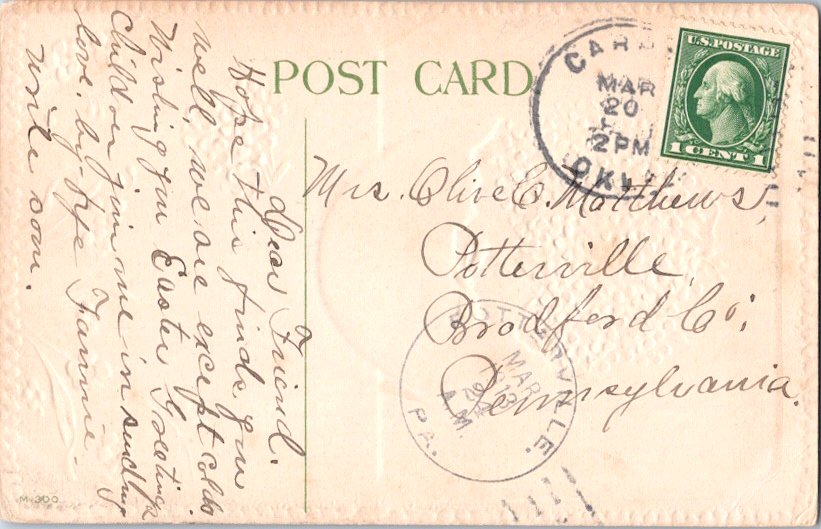 POST CARD
U.S. POSTAGE
1 CENT 1
MAR
20
2 PM
OKLA
Mrs. Olive E. Matthews,
Potterville,
Bradford Co.,
Pennsylvania.
POTTERVILLE.
MAR
A.M.
PA.
Dear Friend.
Hope this finds you
well, we are except colds
Wishing you Easter Greetings
Children join me in sending
love. by-bye Fannie.
write soon.
M-300